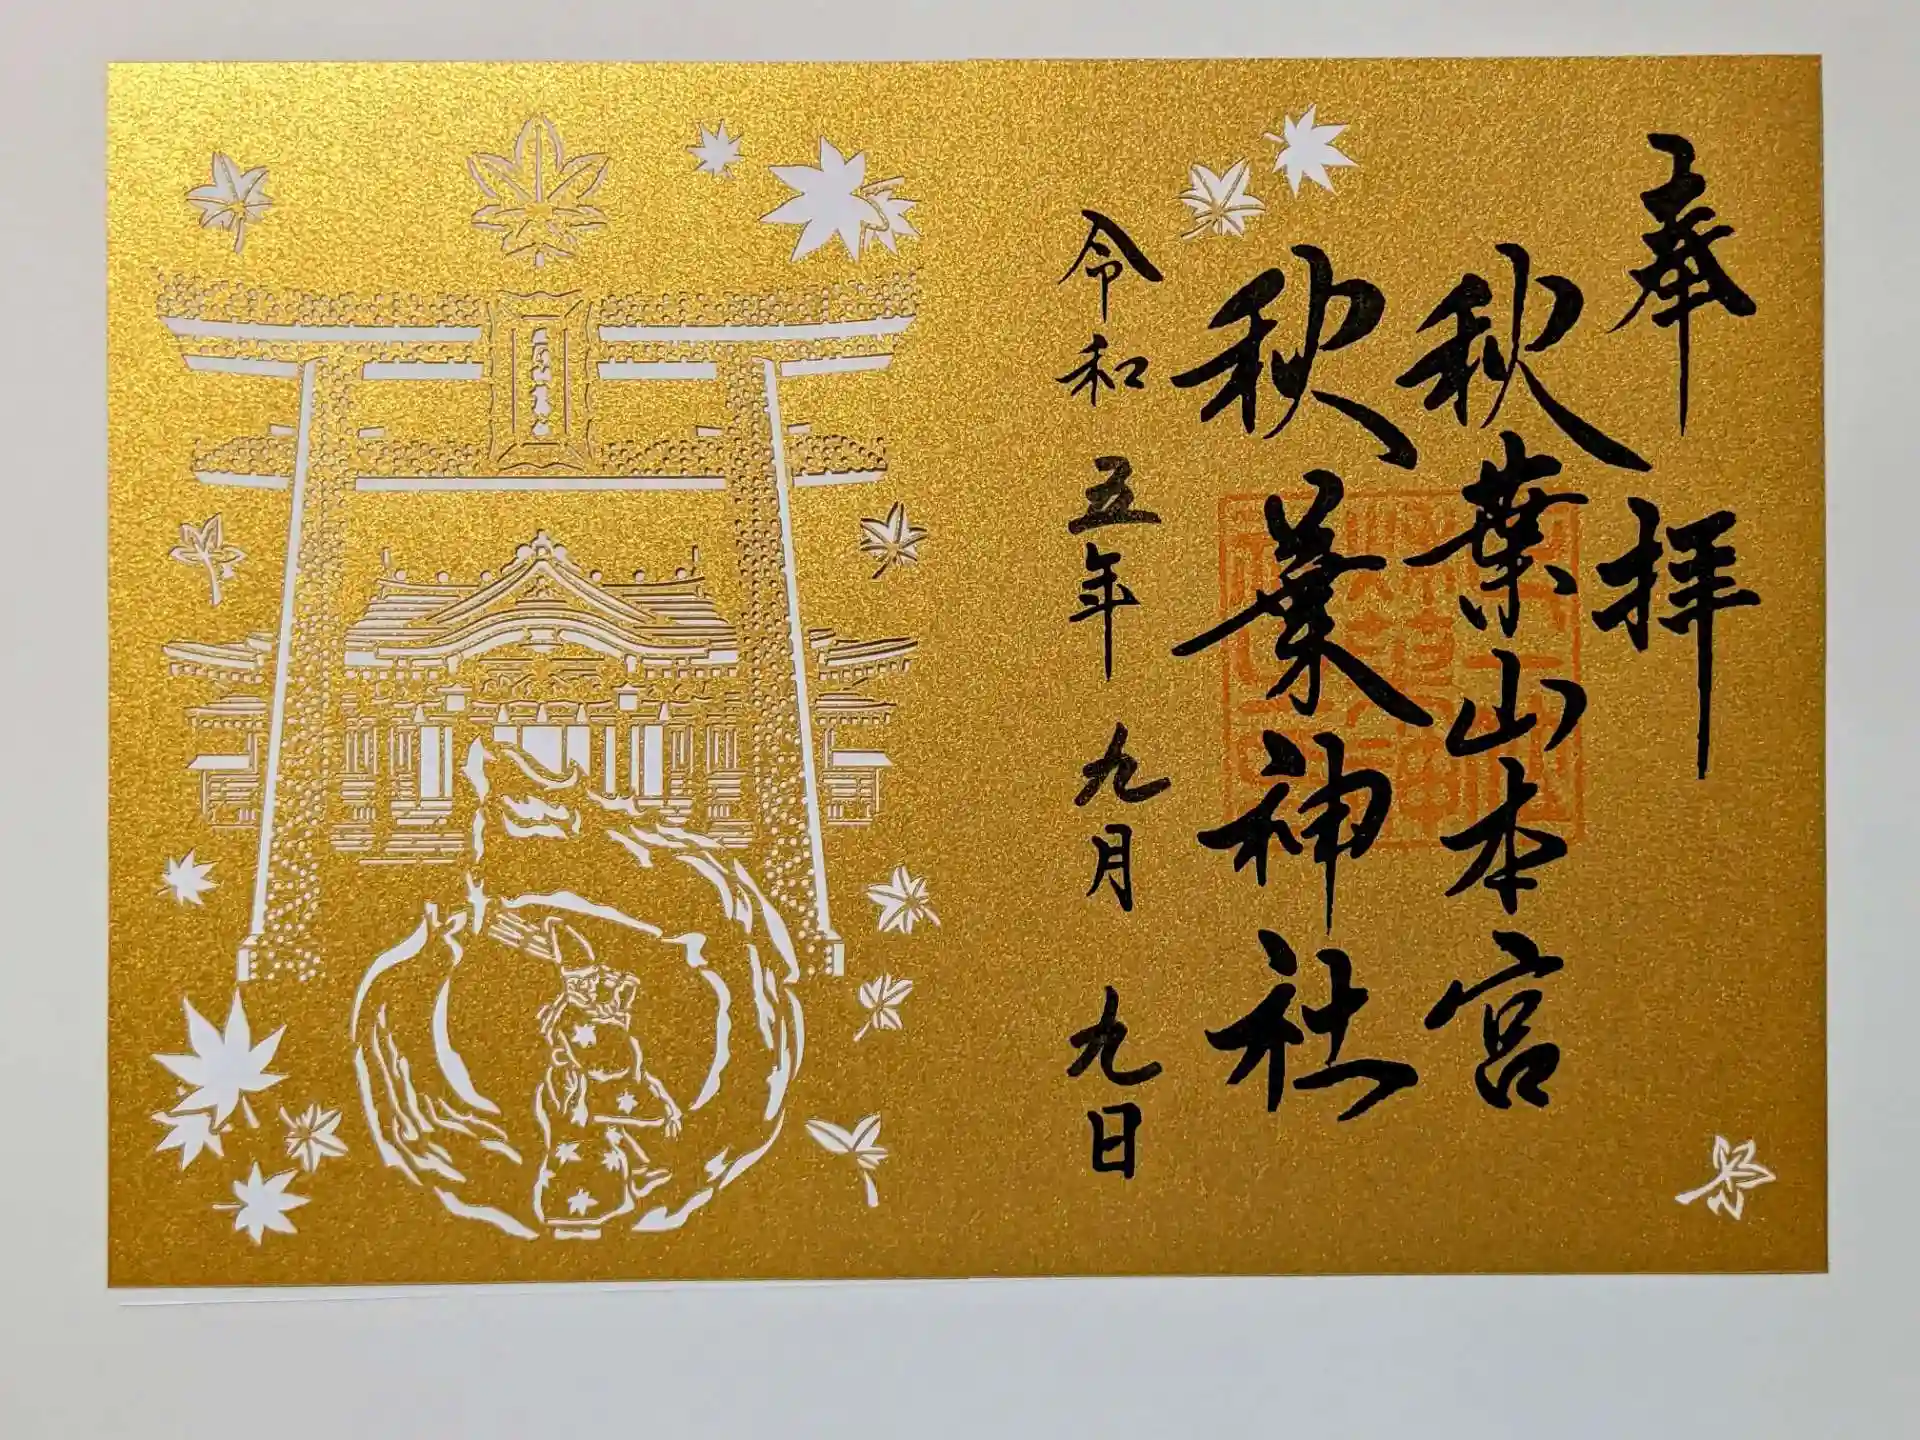 奉拝
秋葉山本宮
秋葉神社
令和五年九月九日